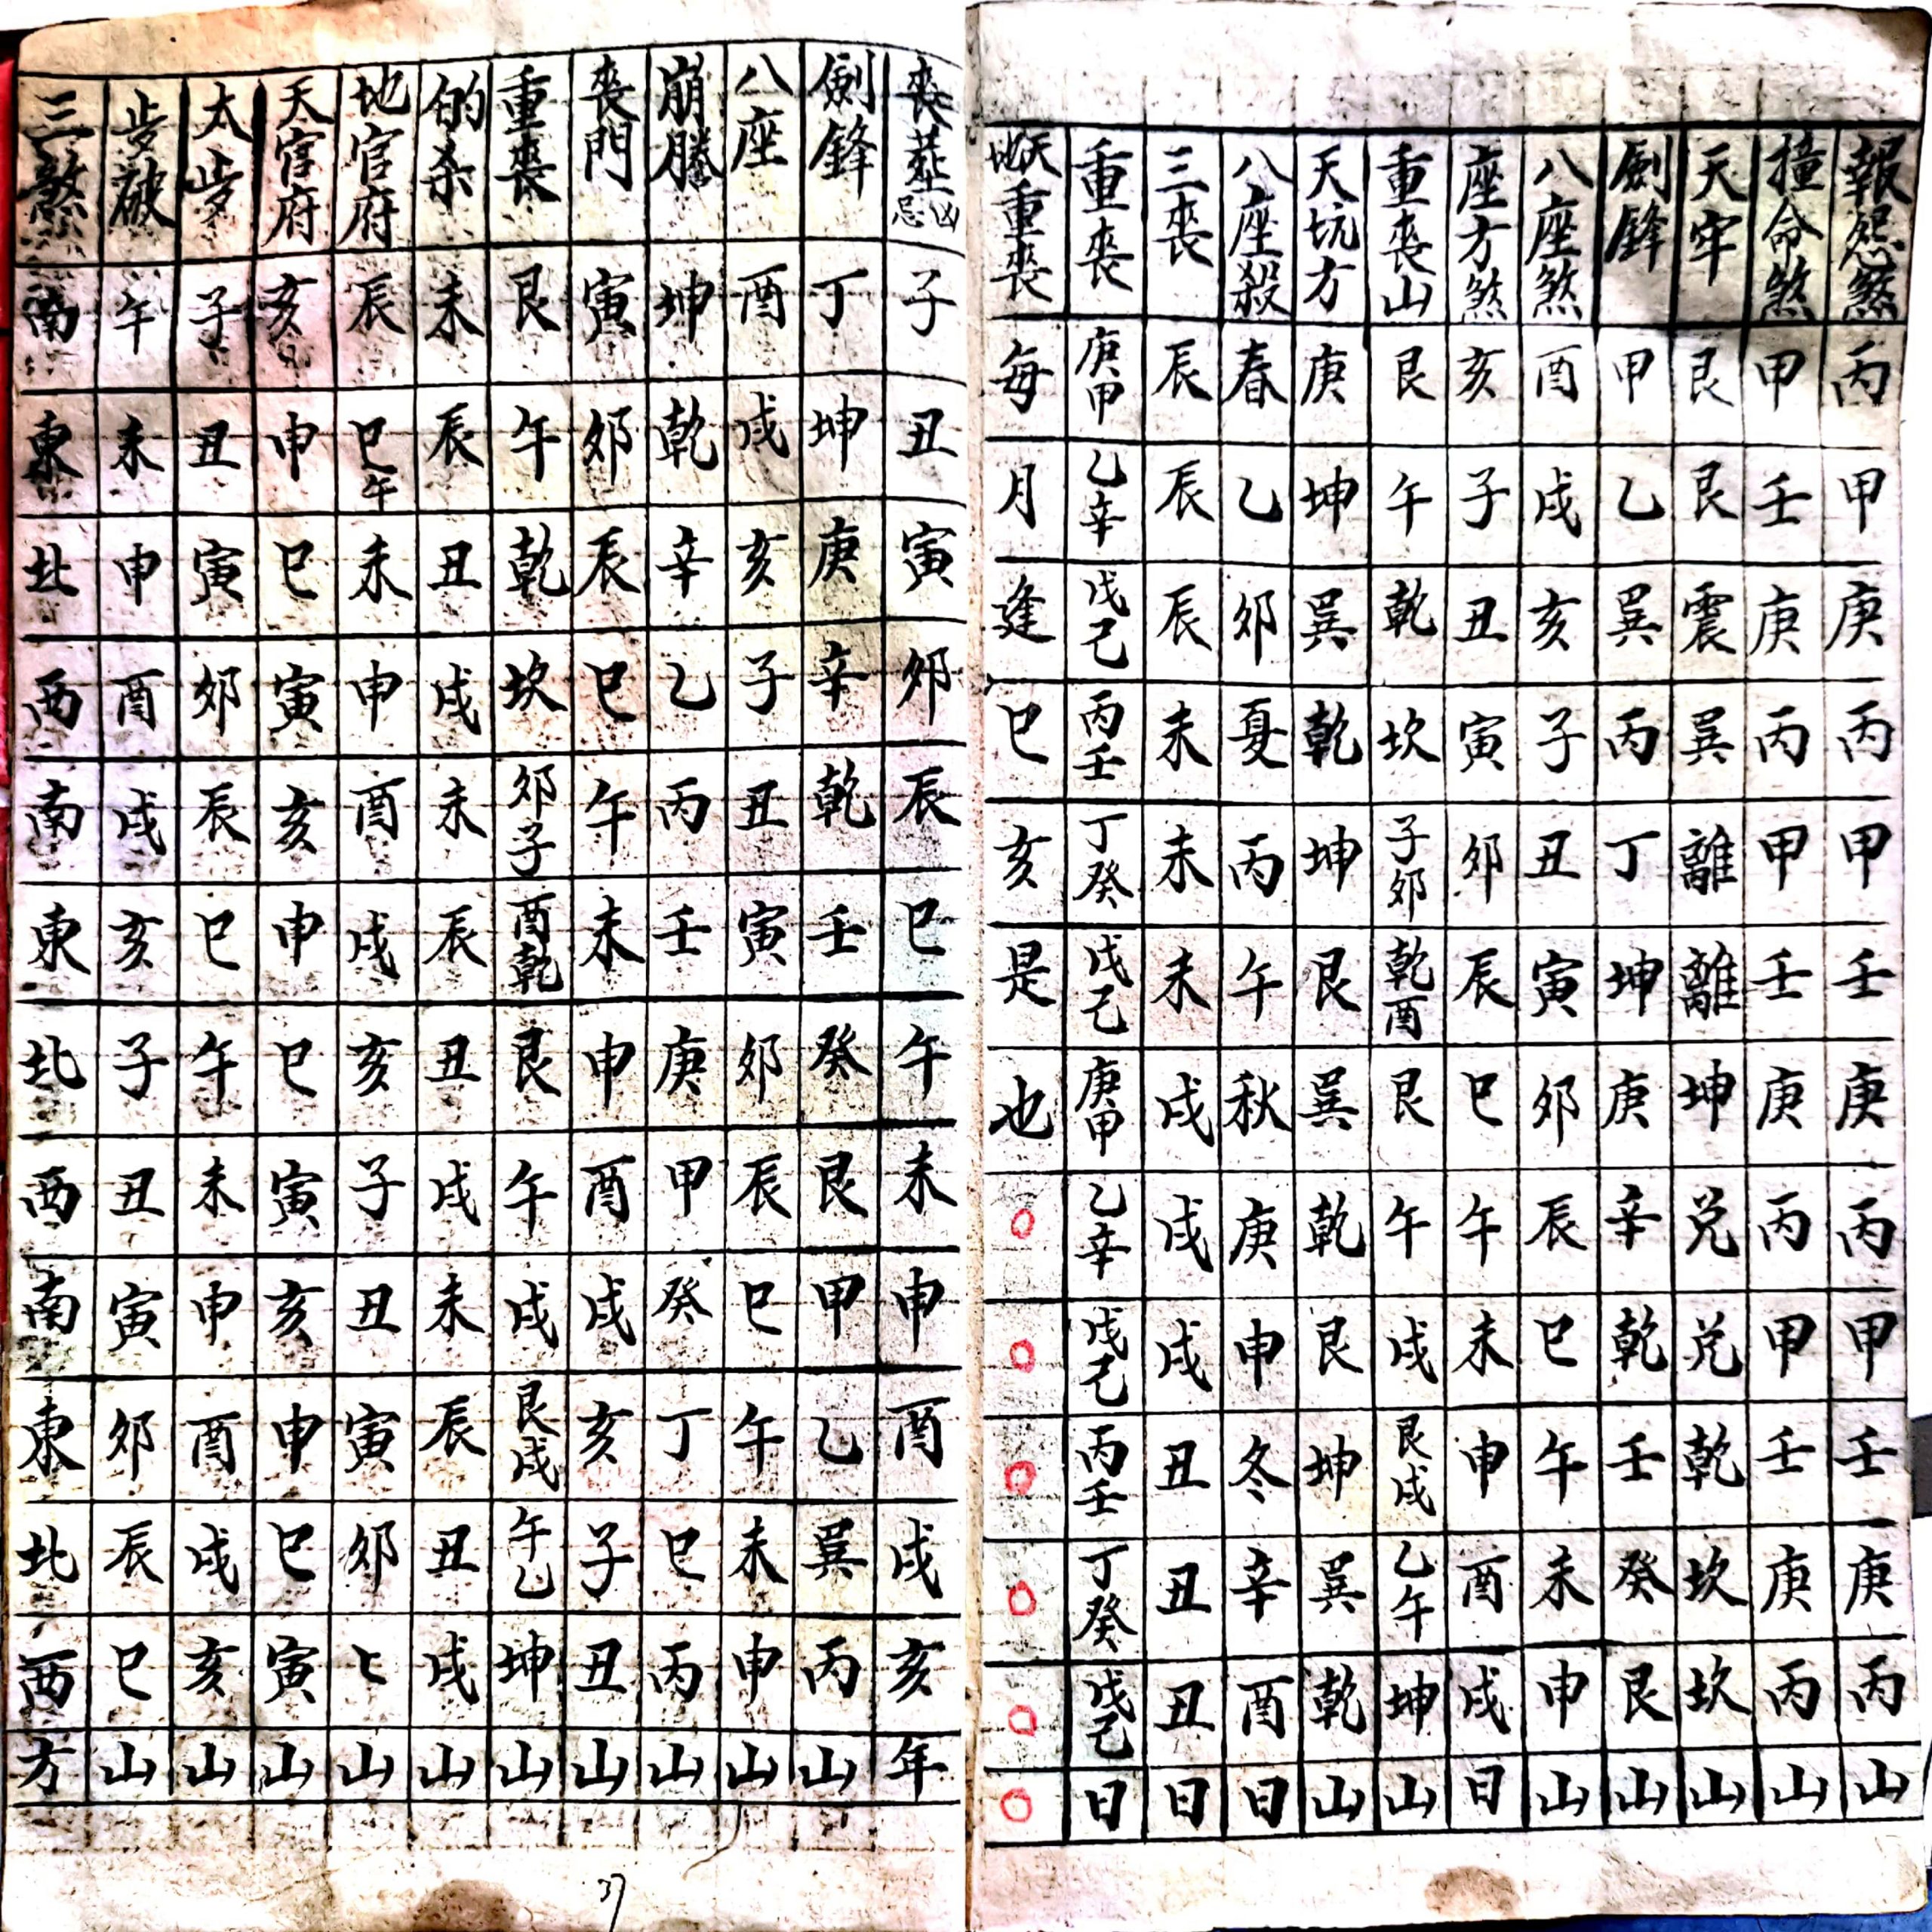 報怨煞 丙 甲 庚 丙 甲 壬 庚 丙 甲 壬 庚 丙 山
撞命煞 甲 壬 庚 丙 甲 壬 庚 丙 甲 壬 庚 丙 山
天牢 艮 艮 震 巽 離 離 坤 兑 兑 乾 坎 坎 山
劍鋒 甲 乙 巽 丙 丁 坤 庚 辛 乾 壬 癸 艮 山
八座煞 酉 戌 亥 子 丑 寅 卯 辰 巳 午 未 申 山
座方煞 亥 子 丑 寅 卯 辰 巳 午 未 申 酉 戌 日
重喪山 艮 午 乾 坎 子卯 乾酉 艮 午 戌 艮戌 乙午 坤 山
天坑方 庚 坤 巽 乾 坤 艮 巽 乾 艮 坤 巽 乾 山
八座殺 春 乙 卯 夏 丙 午 秋 庚 申 冬 辛 酉 日
三喪 辰 辰 辰 未 未 未 戌 戌 戌 丑 丑 丑 日
重喪 庚甲 乙辛 戊己 丙壬 丁癸 戊己 庚甲 乙辛 戊己 丙壬 丁癸 戊己 日
天地重喪 每 月 逢 巳 亥 是 也 ○ ○ ○ ○ ○ ○
喪塟凶忌 子 丑 寅 卯 辰 巳 午 未 申 酉 戌 亥 年
劍鋒 丁 坤 庚 辛 乾 壬 癸 艮 甲 乙 巽 丙 山
八座 酉 戌 亥 子 丑 寅 卯 辰 巳 午 未 申 山
崩騰 坤 乾 辛 乙 丙 壬 庚 甲 癸 丁 巳 丙 山
喪門 寅 卯 辰 巳 午 未 申 酉 戌 亥 子 丑 山
重喪 艮 午 乾 坎 卯子 酉乾 艮 午 戌 艮戌 午乙 坤 山
的杀 未 辰 丑 戌 未 辰 丑 戌 未 辰 丑 戌 山
地官府 辰 巳午 未 申 酉 戌 亥 子 丑 寅 卯 山
天官府 亥 申 巳 寅 亥 申 巳 寅 亥 申 巳 寅 山
太歩 子 丑 寅 卯 辰 巳 午 未 申 酉 戌 亥 山
歩破 午 未 申 酉 戌 亥 子 丑 寅 卯 辰 巳 山
三煞 南 東 北 西 南 東 北 西 南 東 北 西 方
37